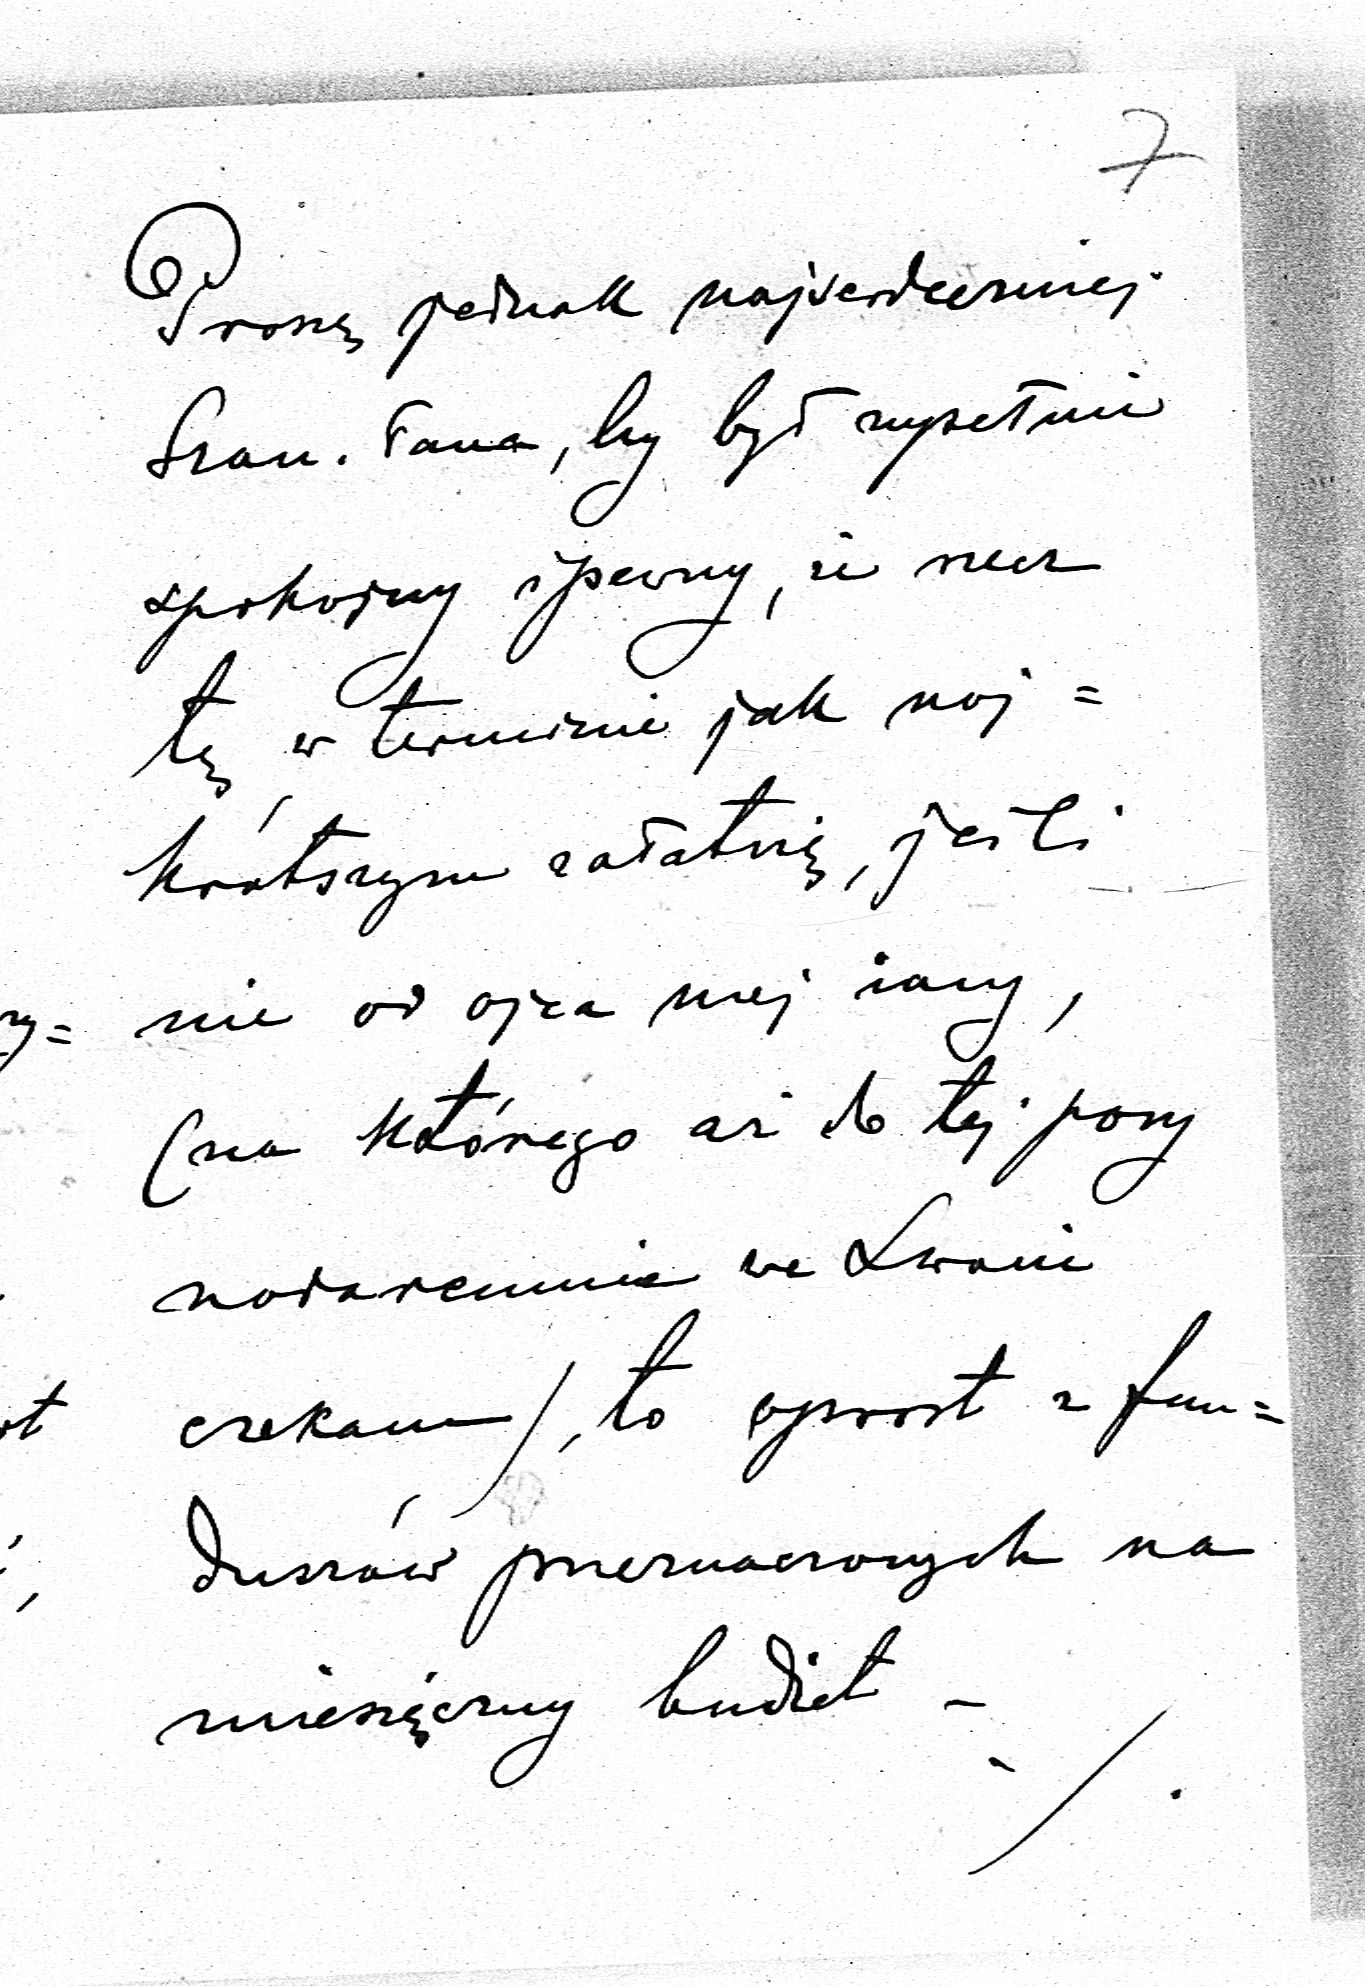 7
Proszę jednak najserdeczniej
Szan. Pana, by był zupełnie
spokojny i pewny, że rzecz
tę w terminie jak naj=
krótszym załatwię, jeśli
nie od ojca mej żony,
(na którego aż do tej pory
nadaremnie we Lwowie
czekam), to wprost z fun=
duszów przeznaczonych na
miesięczny budżet –